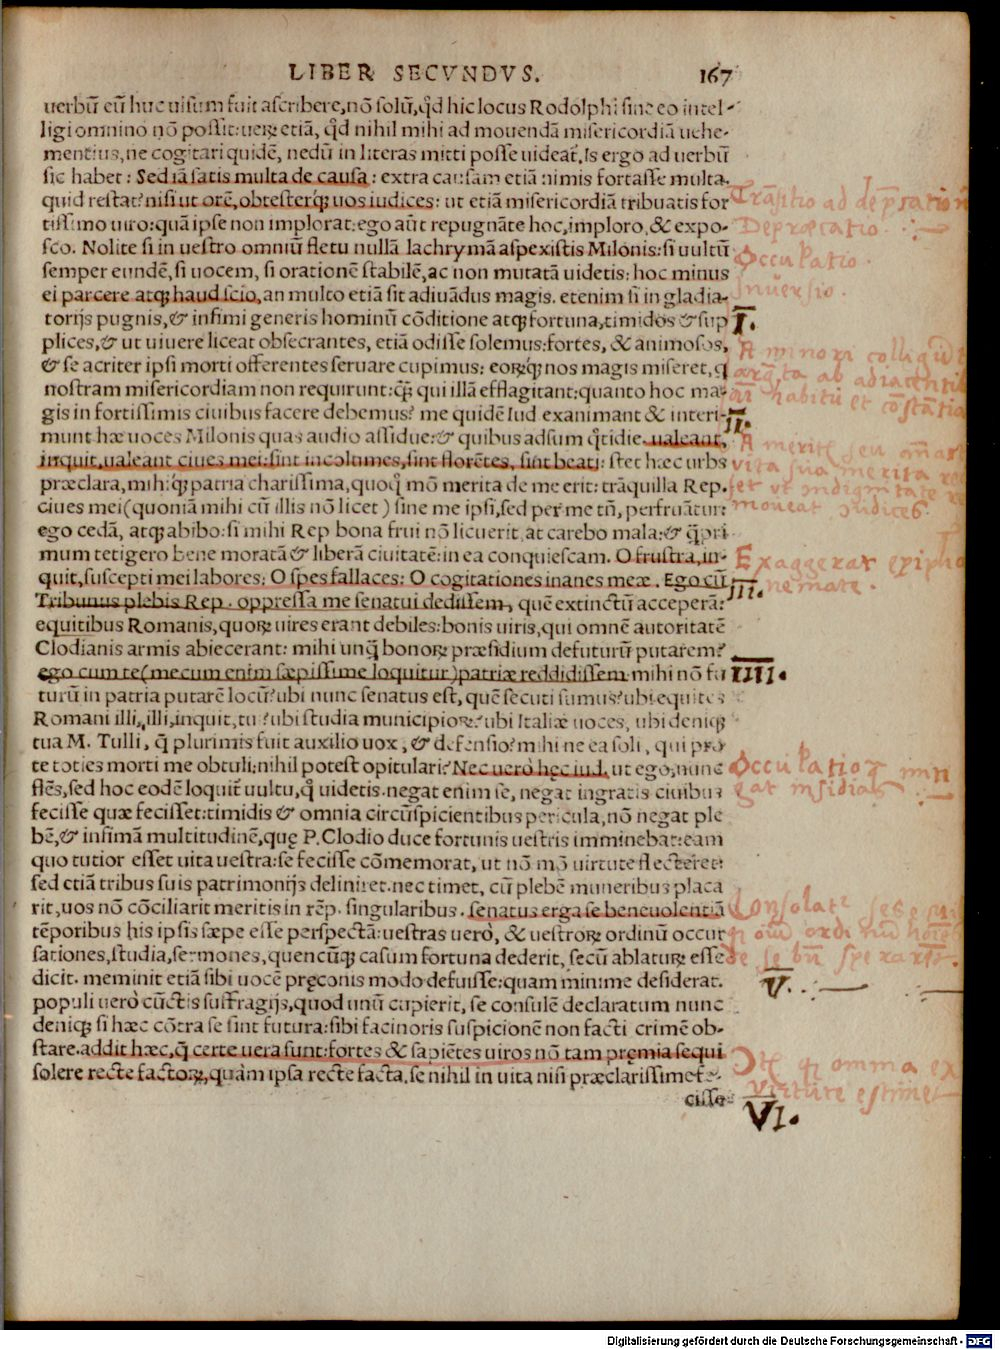 LIBER SECVNDVS. 167
uerbū eū huc uisum fuit ascribere, nō solū, qđ hic locus Rodolphi sine eo intel-
ligi omnino nō possit: ueꝝ etiā, qđ nihil mihi ad mouendā misericordiā uehe-
mentius, ne cogitari quidē, nedū in literas mitti posse uideat̃. Is ergo ad uerbū
sic habet: Sed iā satis multa de causa: extra causam etiā nimis fortasse multa.
quid restat? nisi ut orē, obtesterq́ꝫ uos iudices: ut etiā misericordiā tribuatis for
tissimo uiro: quā ipse non implorat: ego aūt repugnāte hoc, imploro, & expo-
sco. Nolite si in uestro omniū fletu nullā lachrymā aspexistis Milonis: si uultū
semper eundē, si uocem, si orationē stabilē, ac non mutatā uidetis: hoc minus
ei parcere atqꝫ haud scio, an multo etiā sit adiuādus magis. etenim si in gladia-
torijs pugnis, & infimi generis hominū cōditione atqꝫ fortuna, timidos & sup
plices, & ut uiuere liceat obsecrantes, etiā odisse solemus: fortes, & animosos,
& se acriter ipsi morti offerentes seruare cupimus: eorūq́ꝫ nos magis miseret, q
nostram misericordiam non requirunt: q̄ꝫ qui illā efflagitant: quanto hoc ma-
gis in fortissimis ciuibus facere debemus? me quidē Iud. exanimant & interi-
munt hæ uoces Milonis quas audio assidue: & quibus adsum q̄tidie. ualeant,
inquit, ualeant ciues mei: sint incolumes, sint florētes, sint beati: stet hæc urbs
præclara, mihiq́ꝫ patria charissima, quoq̃ mō merita de me erit: trāquilla Rep.
ciues mei (quoniā mihi cū illis nō licet) sine me ipsi, sed per me tñ, perfruātur:
ego cedā, atqꝫ abibo: si mihi Rep bona frui nō licuerit, at carebo mala: & q̄ pri
mum tetigero bene moratā & liberā ciuitatē: in ea conquiescam. O frustra, in-
quit, suscepti mei labores: O spes fallaces: O cogitationes inanes meæ. Ego cū
Tribunus plebis Rep. oppressa me senatui dedissem, quē extinctū acceperā:
equitibus Romanis, quoꝝ uires erant debiles: bonis uiris, qui omnē autoritatē
Clodianis armis abiecerant: mihi unq̄ bonoꝝ præsidium defuturū putarem?
ego cum te (mecum enim sæpissime loquitur) patriæ reddidissem. mihi nō fu
turū in patria putarē locū? ubi nunc senatus est, quē secuti sumus? ubi equites
Romani illi, illi, inquit, tui? ubi studia municipioꝝ? ubi Italiæ uoces, ubi deniqꝫ
tua M. Tulli, q̄ plurimis fuit auxilio uox, & defensio? mihi ne ea soli, qui pro
te toties morti me obtuli: nihil potest opitulari? Nec uero hęc iud. ut ego, nunc
flēs, sed hoc eodē loquit̃ uultu, q̃ uidetis. negat enim se, negat ingratis ciuibus
fecisse quæ fecisset: timidis & omnia circūspicientibus pericula, nō negat ple
bē, & infimā multitudinē, quę P. Clodio duce fortunis uestris imminebat: eam
quo tutior esset uita uestra: se fecisse cōmemorat, ut nō mō uirtute flecteret:
sed etiā tribus suis patrimonijs deliniret. nec timet, cū plebē muneribus placa
rit, uos nō cōciliarit meritis in rēp. singularibus. senatus erga se beneuolentiā
tēporibus his ipsis sæpe esse perspectā: uestras uero, & uestroꝝ ordinū occur
sationes, studia, sermones, quencūqꝫ casum fortuna dederit, secū ablaturꝝ esse
dicit. meminit etiā sibi uocē pręconis modo defuisse: quam minime desiderat.
populi uero cūctis suffragijs, quod unū cupierit, se consulē declaratum nunc
deniqꝫ si hæc cōtra se sint futura: sibi facinoris suspicionē non facti crimē ob-
stare. addit hæc, q̄ certe uera sunt: fortes & sapiētes uiros nō tam pręmia sequi
solere recte factoꝝ, quàm ipsa recte facta, se nihil in uita nisi præclarissime fe-
cisse
Depræcatio.
Occupatio.
Inuersio.
I.
A minori
II.
moueat Iudices.
Exaggerat epipho
nemate.
III.
IIII.
Occupatio
gat insidias
V.
omnia ex
virtute estimet
VI.
Digitalisierung gefördert durch die Deutsche Forschungsgemeinschaft - DFG